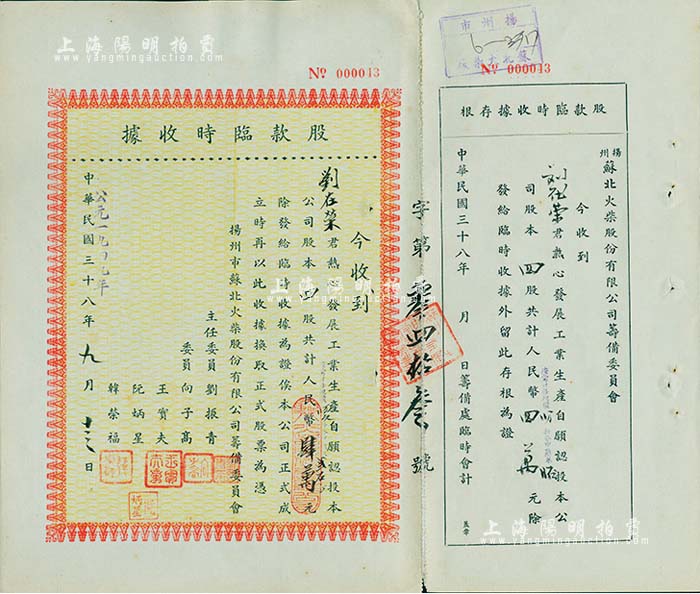 上海陽明拍賣
www.yangmingauction.com
№ 000043
股款臨時收據
今收到
劉在榮君熱心發展工業生產自願認投本
公司股本四股共計人民幣肆萬元
除發給臨時收據為證俟本公司正式成
立時再以此收據換取正式股票為憑
揚州市蘇北火柴股份有限公司籌備委員會
主任委員 劉振青
委員 向子高
王寶夫
阮炳星
韓榮福
公元一九四九年
中華民國三十八年九月十三日
字第零四拾叁號
揚州市
№ 000043
股款臨時收據存根
揚州蘇北火柴股份有限公司籌備委員會
今收到
劉在榮君熱心發展工業生產自願認投本公
司股本四股共計人民幣四萬元除
發給臨時收據外留此存根為證
中華民國三十八年 月 日籌備處臨時會計 蓋章
上海陽明拍賣
www.yangmingauction.com